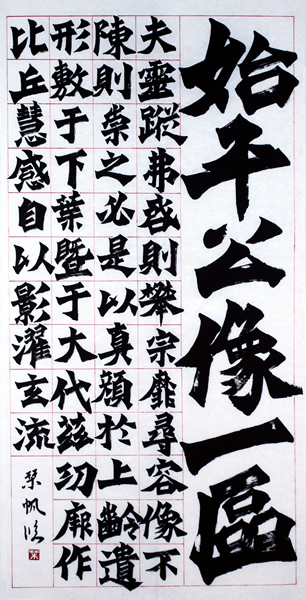 始平公像一區
夫靈蹤弗啓則攀宗靡尋容像不
陳則崇之必是以真顔於上齡遺
形敷于下葉暨于大代茲功厥作
比丘慧感自以影濯玄流
帆臨